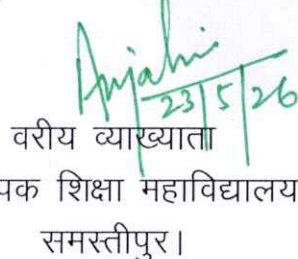 Anjali
23/5/26
वरीय व्याख्याता
पक शिक्षा महाविद्यालय
समस्तीपुर।